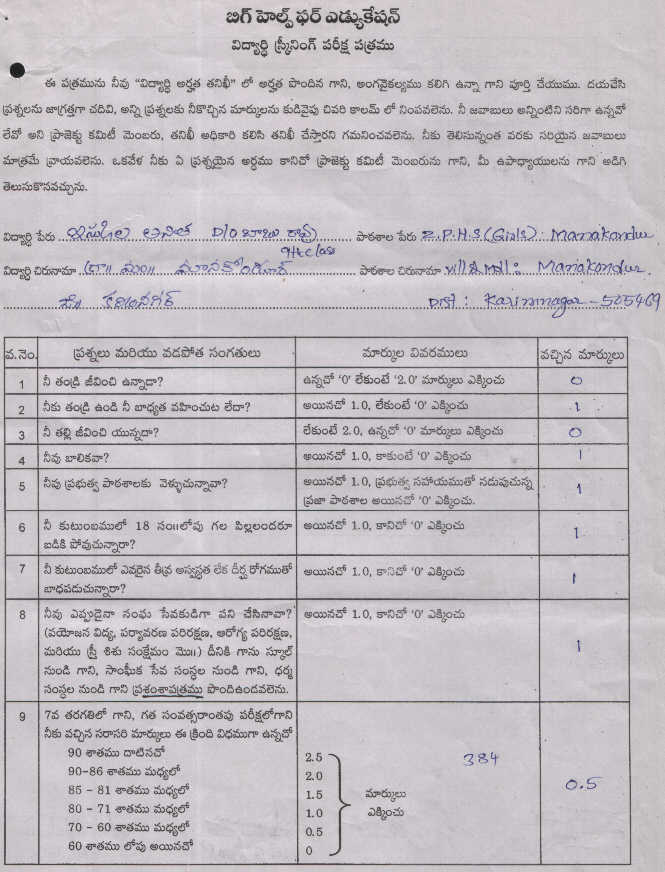 బిగ్ హెల్ప్ ఫర్ ఎడ్యుకేషన్
విద్యార్థి స్క్రీనింగ్ పరీక్ష పత్రము
ఈ పత్రమును నీవు "విద్యార్థి అర్హత తనిఖీ" లో అర్హత పొందిన గాని, అంగవైకల్యము కలిగి ఉన్నా గాని పూర్తి చేయుము. దయచేసి
ప్రశ్నలను జాగ్రత్తగా చదివి, అన్ని ప్రశ్నలకు నీకొచ్చిన మార్కులను కుడివైపు చివరి కాలమ్ లో నింపవలెను. నీ జవాబులు అన్నింటిని సరిగా ఉన్నవో
లేవో అని ప్రాజెక్టు కమిటీ మెంబరు, తనిఖీ అధికారి కలిసి తనిఖీ చేస్తారని గమనించవలెను. నీకు తెలిసున్నంత వరకు సరియైన జవాబులు
మాత్రమే వ్రాయవలెను. ఒకవేళ నీకు ఏ ప్రశ్నయైన అర్థము కానిచో ప్రాజెక్టు కమిటీ మెంబరును గాని, మీ ఉపాధ్యాయులను గాని అడిగి
తెలుసుకొనవచ్చును.
విద్యార్థి పేరు అనిత D/O బాబు రావు పాఠశాల పేరు Z.P.H.S (Girls) : Manakondur
9th class
విద్యార్థి చిరునామా గ్రా॥ మం॥ మానకొండూర్ పాఠశాల చిరునామా vill & Mdl : Manakondur
జి॥ కరీంనగర్ Dist : Karimnagar - 505469
వ.నెం. ప్రశ్నలు మరియు వడపోత సంగతులు మార్కుల వివరములు వచ్చిన మార్కులు
1 నీ తండ్రి జీవించి ఉన్నాడా? ఉన్నచో '0' లేకుంటే '2.0' మార్కులు ఎక్కించు 0
2 నీకు తండ్రి ఉండి నీ బాధ్యత వహించుట లేదా? అయినచో 1.0, లేకుంటే '0' ఎక్కించు 1
3 నీ తల్లి జీవించి యున్నదా? లేకుంటే 2.0, ఉన్నచో '0' మార్కులు ఎక్కించు 0
4 నీవు బాలికవా? అయినచో 1.0, కాకుంటే '0' ఎక్కించు 1
5 నీవు ప్రభుత్వ పాఠశాలకు వెళ్ళుచున్నావా? అయినచో 1.0, ప్రభుత్వ సహాయముతో నడుపుచున్న 1
ప్రజా పాఠశాల అయినచో '0' ఎక్కించు.
6 నీ కుటుంబములో 18 సం॥లోపు గల పిల్లలందరూ అయినచో 1.0, కానిచో '0' ఎక్కించు 1
బడికి పోవుచున్నారా?
7 నీ కుటుంబములో ఎవరైన తీవ్ర అస్వస్థత లేక దీర్ఘ రోగముతో అయినచో 1.0, కానిచో '0' ఎక్కించు 1
బాధపడుచున్నారా?
8 నీవు ఎప్పుడైనా సంఘ సేవకుడిగా పని చేసినావా? అయినచో 1.0, కానిచో '0' ఎక్కించు 1
(వయోజన విద్య, పర్యావరణ పరిరక్షణ, ఆరోగ్య పరిరక్షణ,
మరియు స్త్రీ శిశు సంక్షేమం మొ॥) దీనికి గాను స్కూల్
నుండి గాని, సాంఘిక సేవ సంస్థల నుండి గాని, ధర్మ
సంస్థల నుండి గాని ప్రశంశాపత్రము పొందిఉండవలెను.
9 7వ తరగతిలో గాని, గత సంవత్సరాంతపు పరీక్షలోగాని
నీకు వచ్చిన సరాసరి మార్కులు ఈ క్రింది విధముగా ఉన్నచో
90 శాతము దాటినచో 2.5 384
90-86 శాతము మధ్యలో 2.0 0.5
85 - 81 శాతము మధ్యలో 1.5 మార్కులు
80 - 71 శాతము మధ్యలో 1.0 ఎక్కించు
70 - 60 శాతము మధ్యలో 0.5
60 శాతము లోపు అయినచో 0